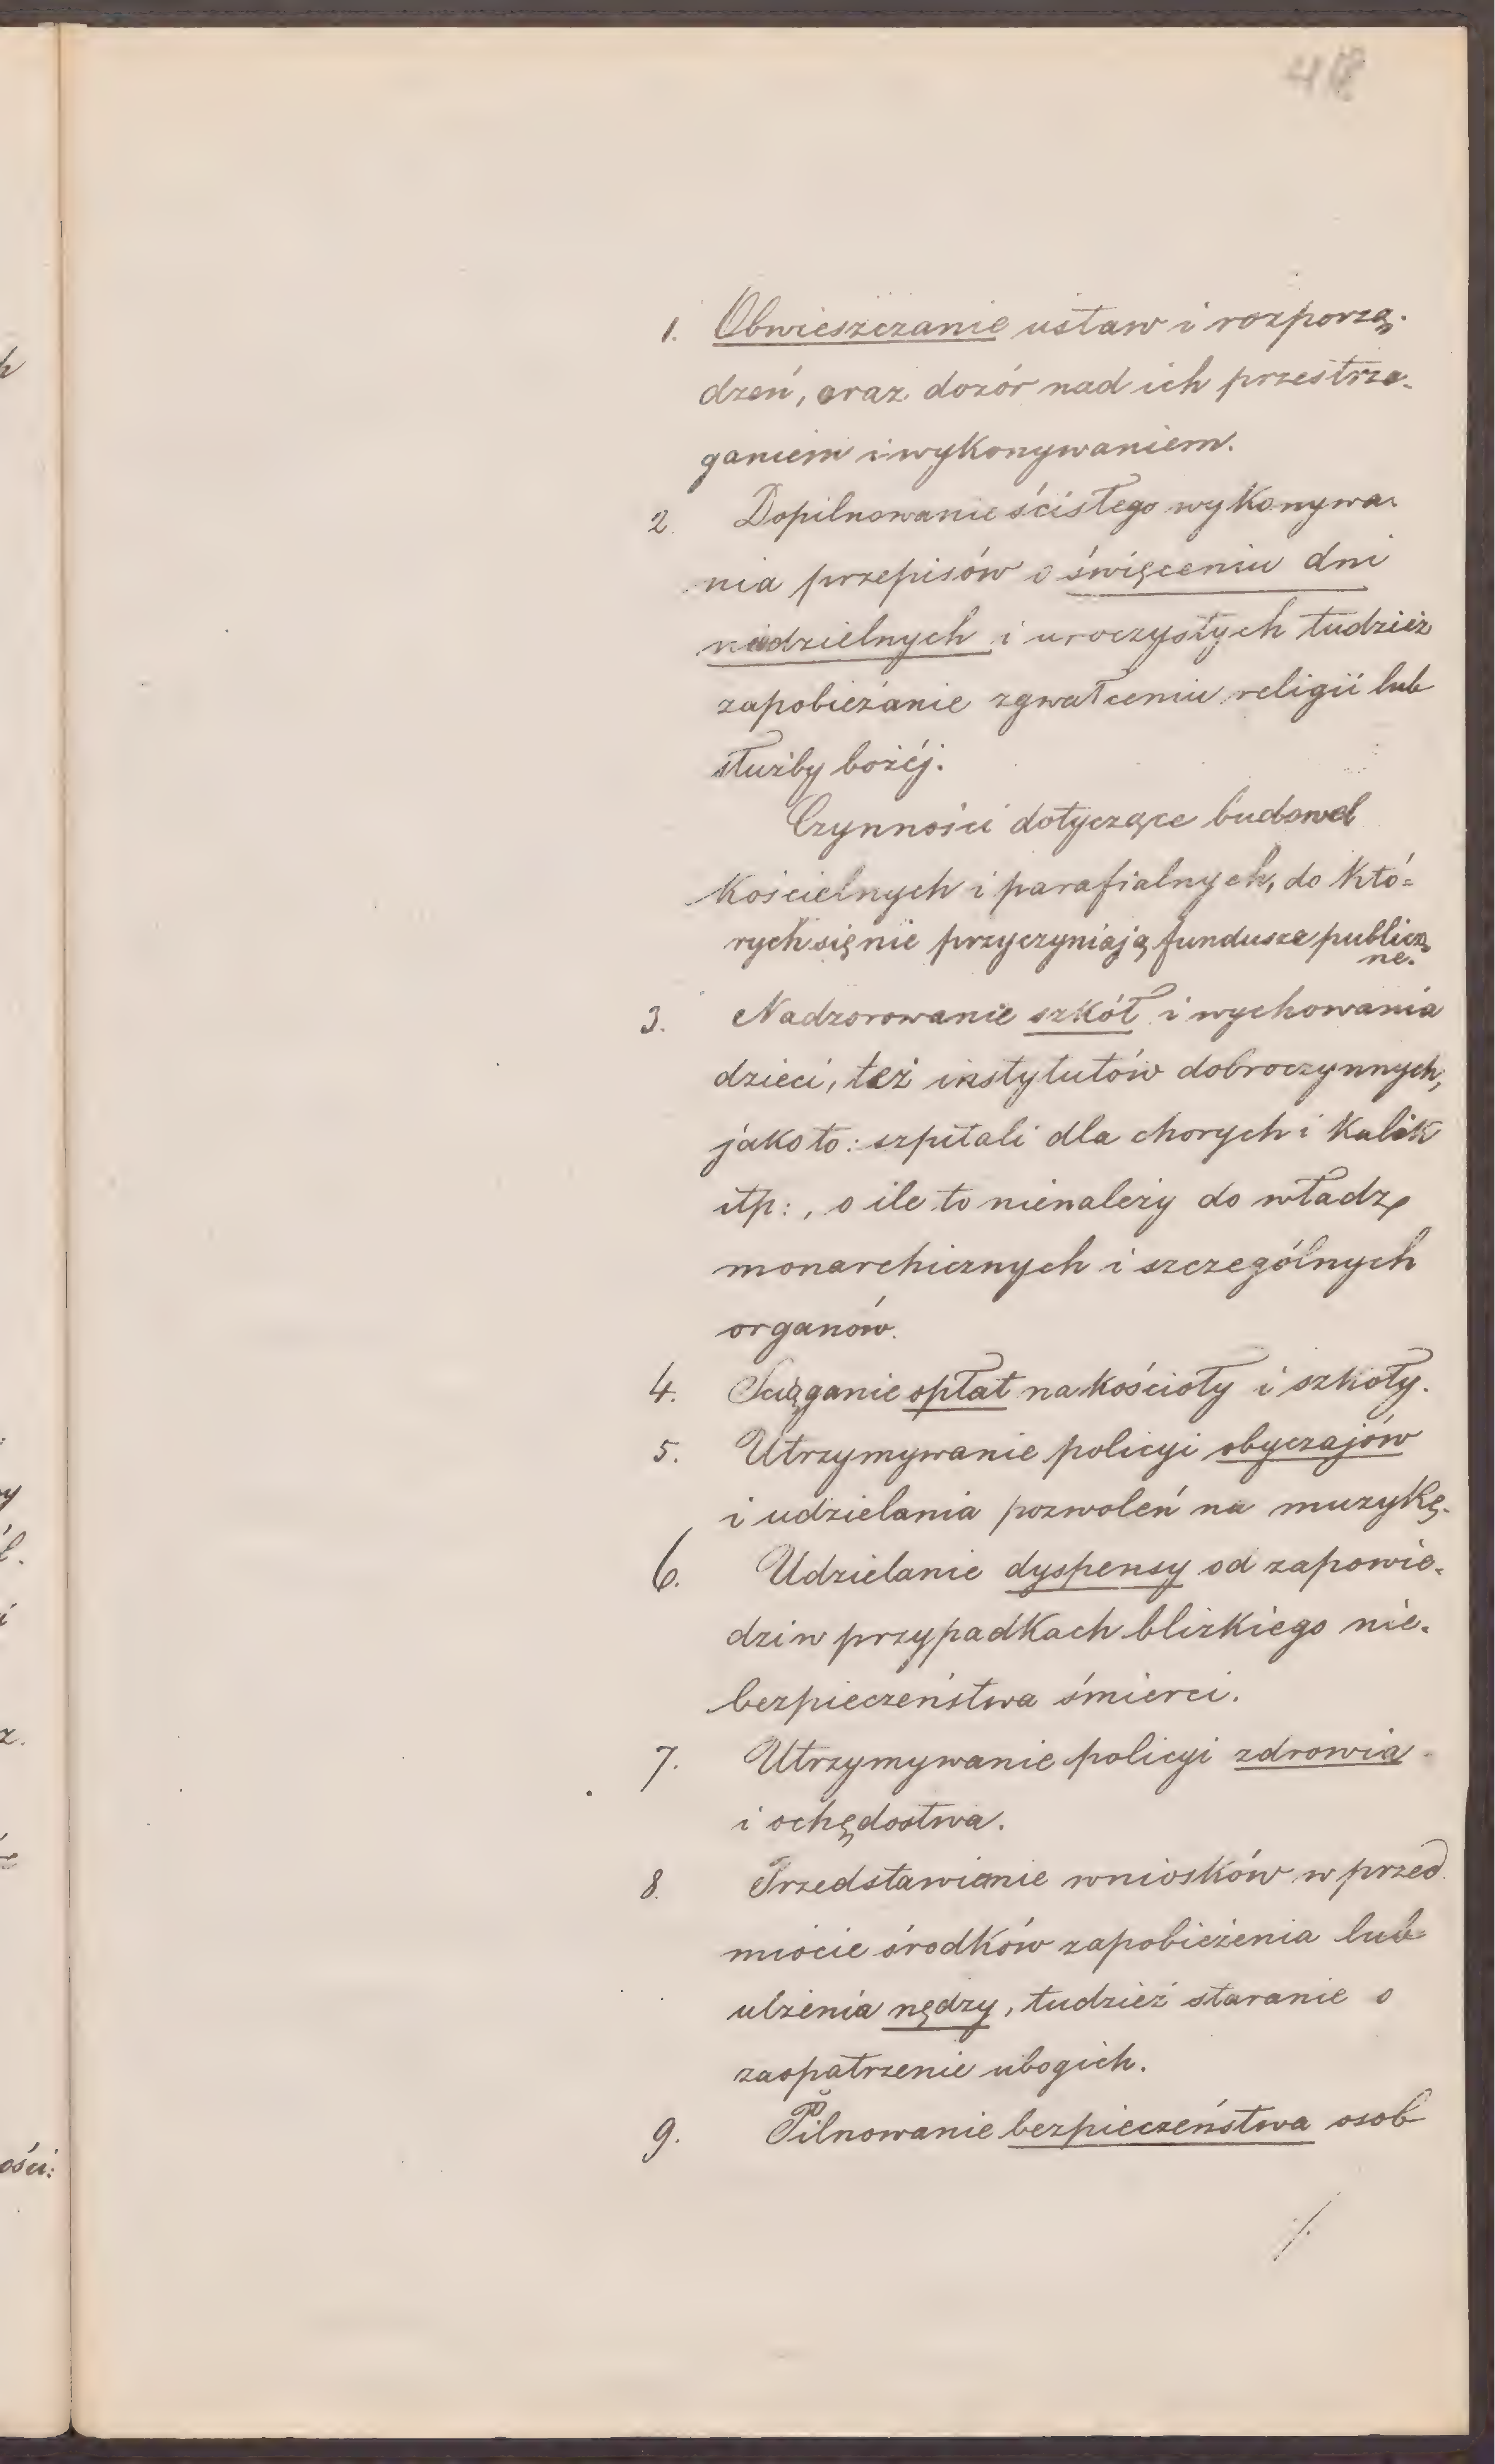 418
1. Obwieszczanie ustaw i rozporzą-
dzeń, oraz dozór nad ich przestrze-
ganiem i wykonywaniem.
2. Dopilnowanie ścisłego wykonywa-
nia przepisów o święceniu dni
niedzielnych i uroczystych tudzież
zapobieżanie zgwałceniu religii lub
służby bożéj.
Czynności dotyczące budowel
kościelnych i parafialnych, do któ=
rych się nie przyczyniają fundusze publicz
ne.
3. Nadzorowanie szkół i wychowania
dzieci, też instytutów dobroczynnych,
jako to: szpitali dla chorych i kalik
itp:, o ile to nienależy do władz
monarchicznych i szczególnych
organów.
4. Sciąganie opłat na kościoły i szkoły.
5. Utrzymywanie policyi obyczajów
i udzielania pozwoleń na muzykę.
6. Udzielanie dyspensy od zapowie-
dzi w przypadkach blizkiego nie-
bezpieczeństwa śmierci.
7. Utrzymywanie policyi zdrowia
i ochędostwa.
8. Przedstawianie wniosków w przed
miocie środków zapobieżenia lub
ulżenia nędzy, tudzież staranie o
zaopatrzenie ubogich.
9. Pilnowanie bezpieczeństwa osob
./.
ości: